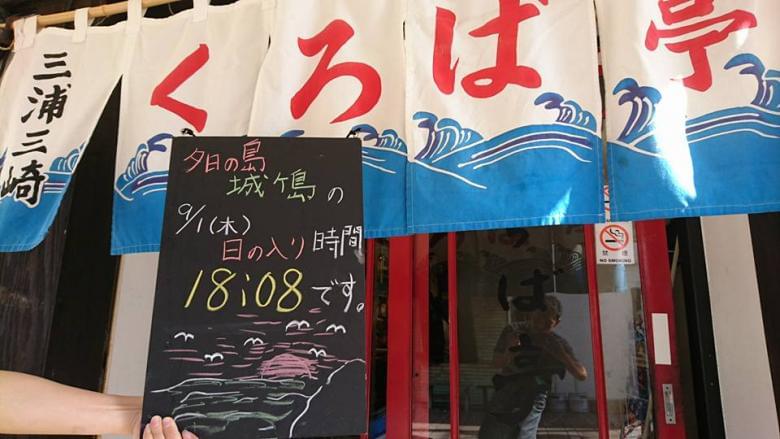 三浦三崎
くろば亭
夕日の島
城ヶ島の
9/1(木)
日の入り時間
18:08です。
禁煙
NO SMOKING
ろば亭